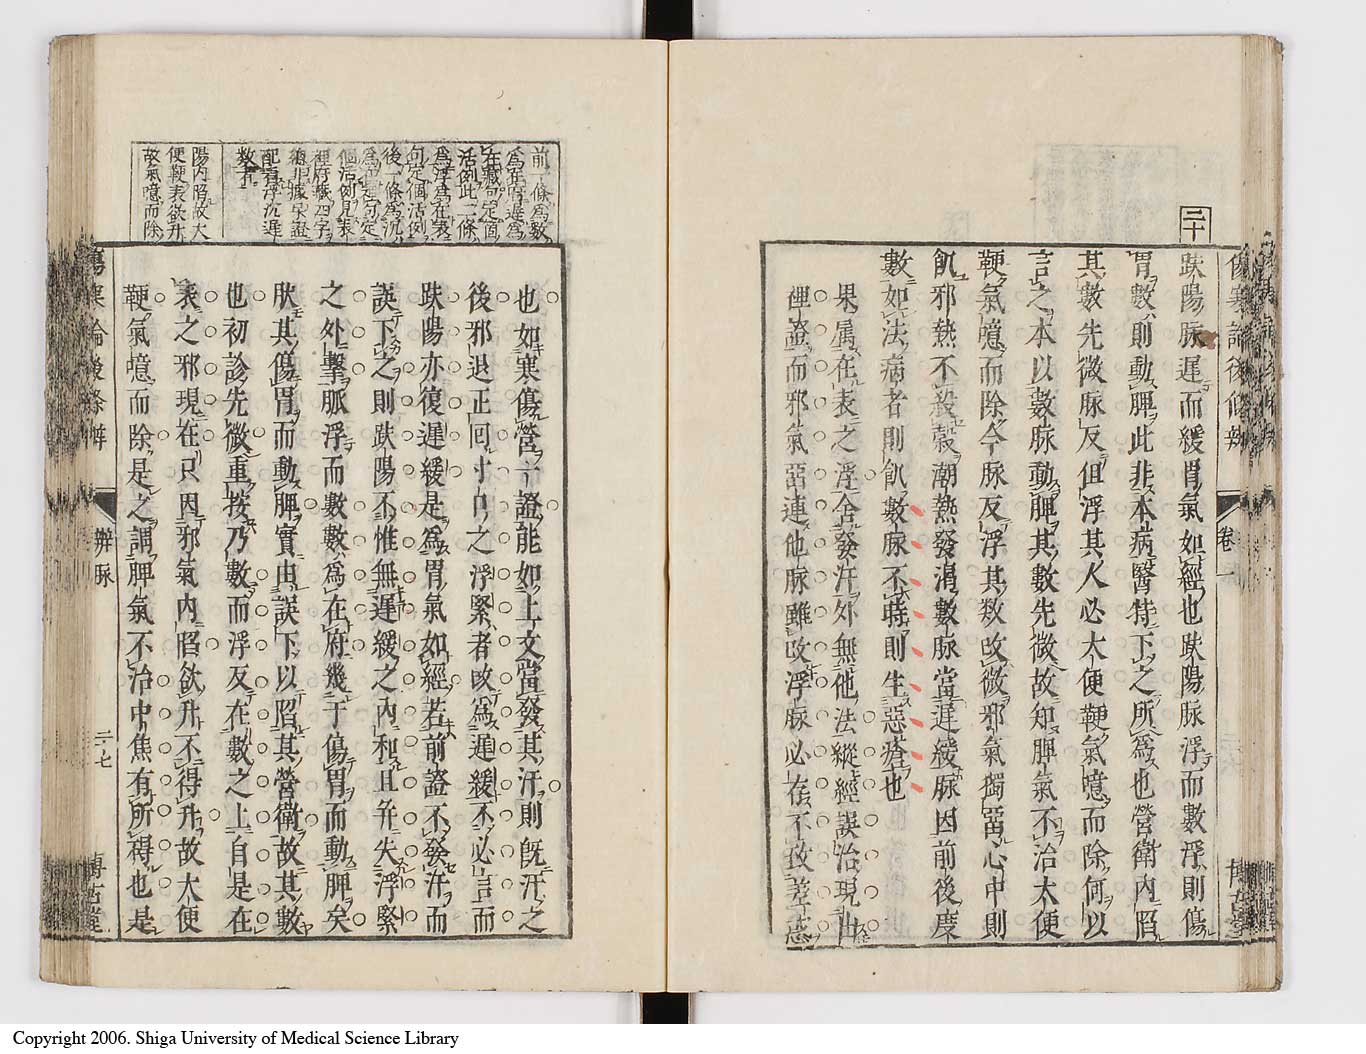 二十
趺陽脉遲而緩胃氣如經也趺陽脉浮而數浮則傷
胃數則動脾此非本病醫特下之所爲也營衛內陷
其數先微脉反但浮其人必大便鞕氣噫而除何以
言之本以數脉動脾其數先微故知脾氣不治大便
鞕氣噫而除今脉反浮其数改微邪氣獨留心中則
飢邪熱不殺穀潮熱發渴數脉當遲緩脉因前後度
數如法病者則飢數脉不時則生惡瘡也
果属在表之浮舍發汗外無他法縱經誤治現出
裡證而邪氣亞連他脉雖改浮脉必在不致差忒
傷寒論後條辨
卷一
博古堂
前一條爲數
爲在府遲爲
在藏句定箇
活例此二條
爲浮爲在表
句定個活例
後一條爲沉
爲在裡句定
個活例見表
裡府藏四字
總非據呆證
配着浮沉遲
數者
陽內陷故大
便鞕表欲升
故氣噫而除
也如寒傷營一證能如上文當發其汗則旣汗之
後邪退正回寸口之浮緊者改爲遲緩不必言而
趺陽亦復遲緩是爲胃氣如經若前證不發汗而
誤下之則趺陽不惟無遲緩之內和且并失浮緊
之外擊脈浮而數數爲在府幾于傷胃而動脾矣
肰其傷胃而動脾實由誤下以陷其營衛故其數
也初診先微重按乃數而浮反在數之上自是在
表之邪現在只因邪氣內陷欲升不得升故大便
鞕氣噫而除是之謂脾氣不治中焦有所碍也是
傷寒論後條辨
辨脉
二十七
博古堂
Copyright 2006. Shiga University of Medical Science Library